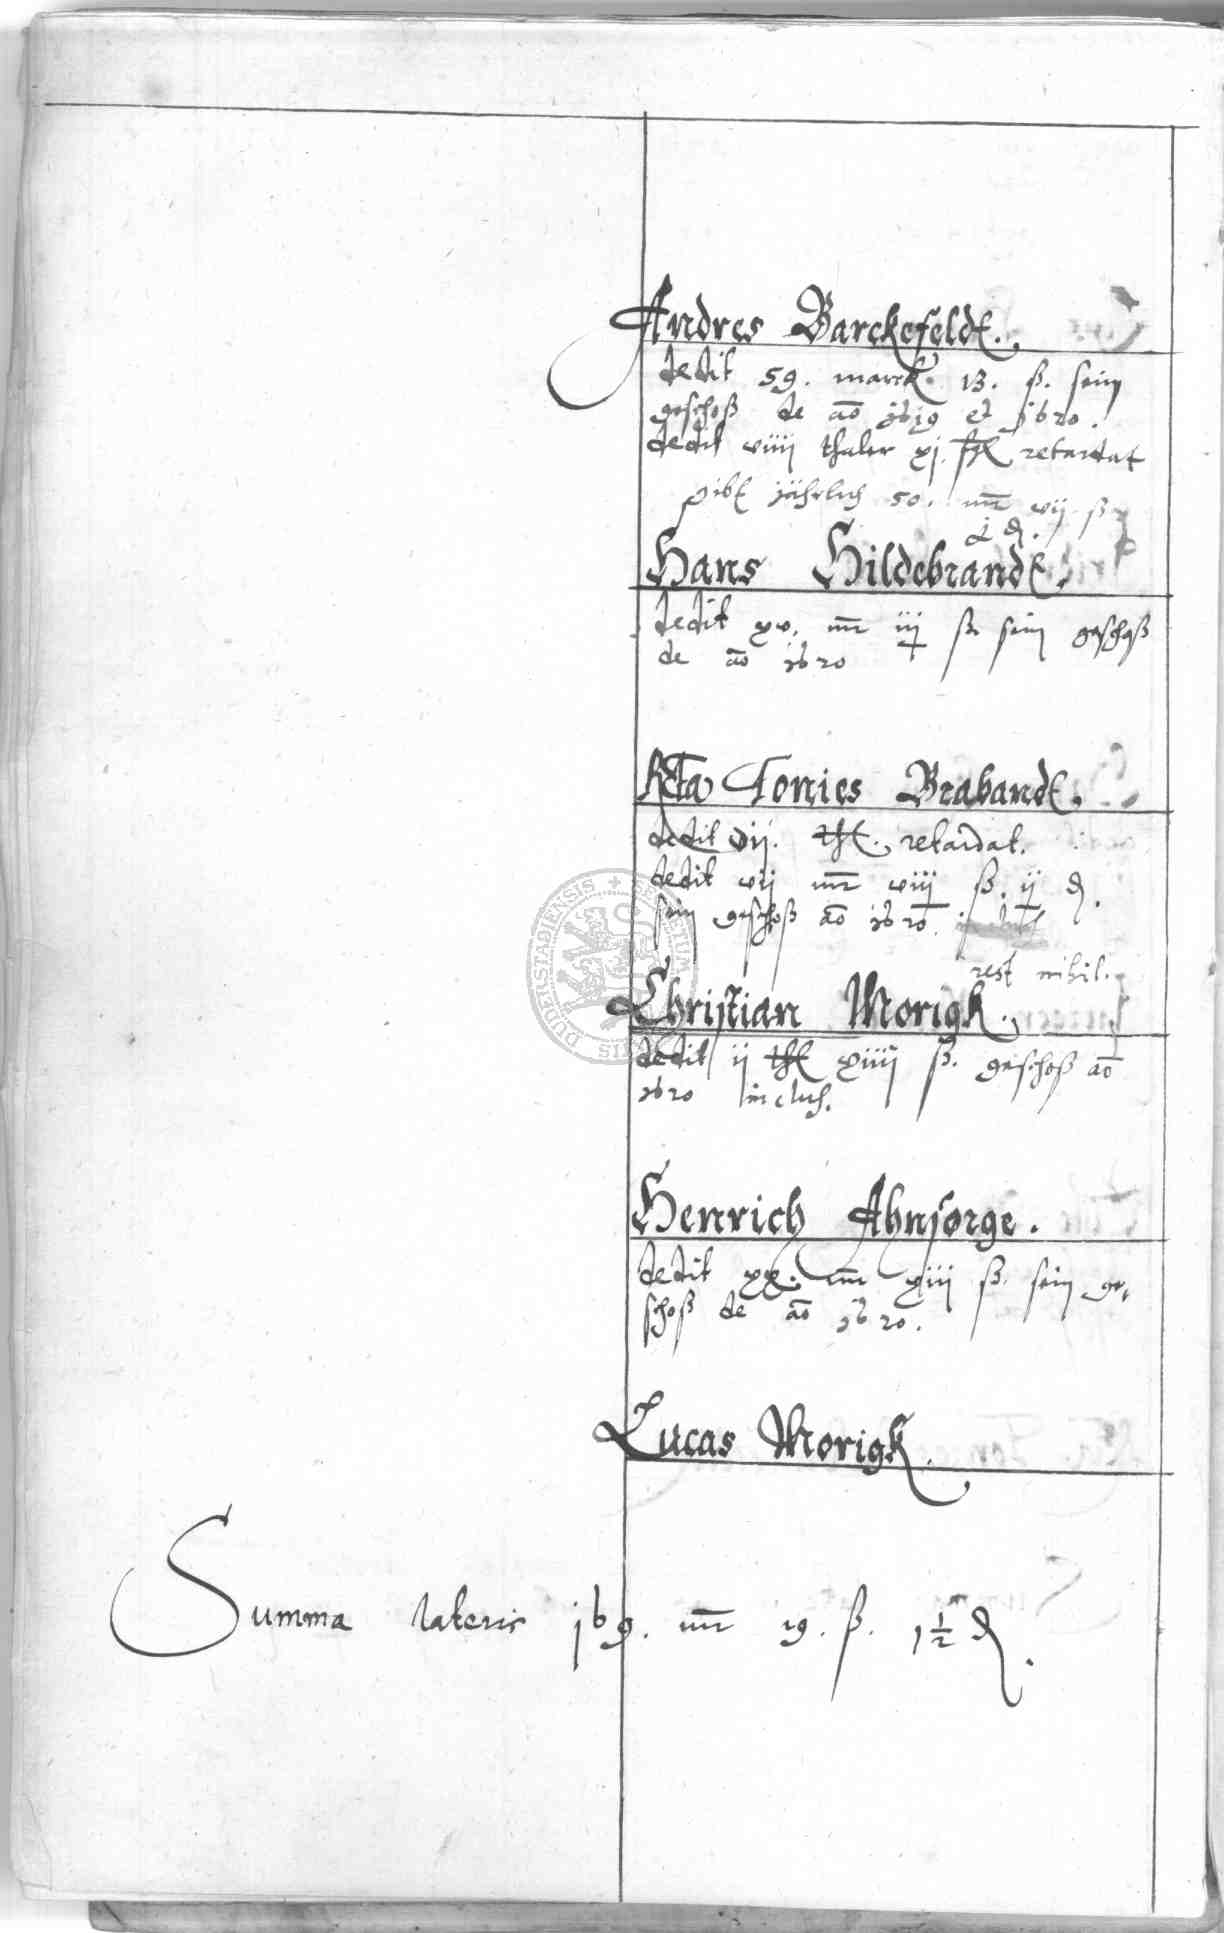 Andres Barckefeldt.
dedit 59. marck. 13. ß. sein
geschoß de ao 1619 et 1620.
dedit viiij thaler xj. retardat
gibt jährlich 50. mr vij ß
Hans Hildebrandt.
dedit xv. mr iij ß. sein geschoß
de ao 1620
Tonies Brabandt.
dedit vij. thl. retardat.
dedit vij mr viij ß. ij d.
sein geschoß ao 1620.
rest nihil.
Christian Morigk.
dedit ij thl xiiij ß. geschoß ao
1620 inclus.
Henrich Ahnsorge.
dedit xx. mr xiij ß. sein ge-
schoß de ao 1620.
Lucas Morigk.
Summa lateris 169. mr 19. ß. 1½ d.
DUDERSTADIENSIS + SECRETUM